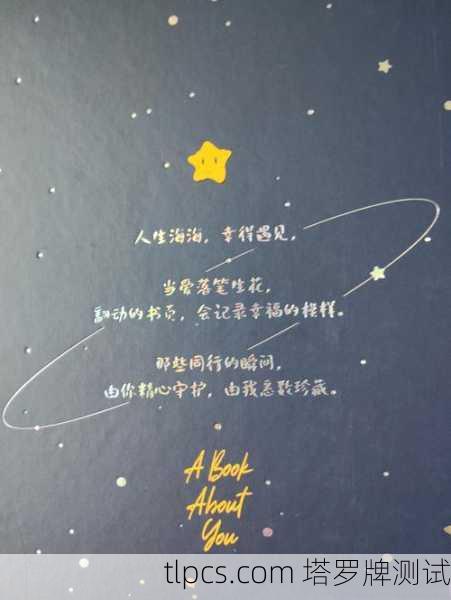 人生海海，幸得遇见，
当爱落笔生花，
翻动的书页，会记录幸福的模样。
那些同行的瞬间，
由你精心守护，由我悉数珍藏。
A Book
About
You
tlpcs.com 塔罗牌测试